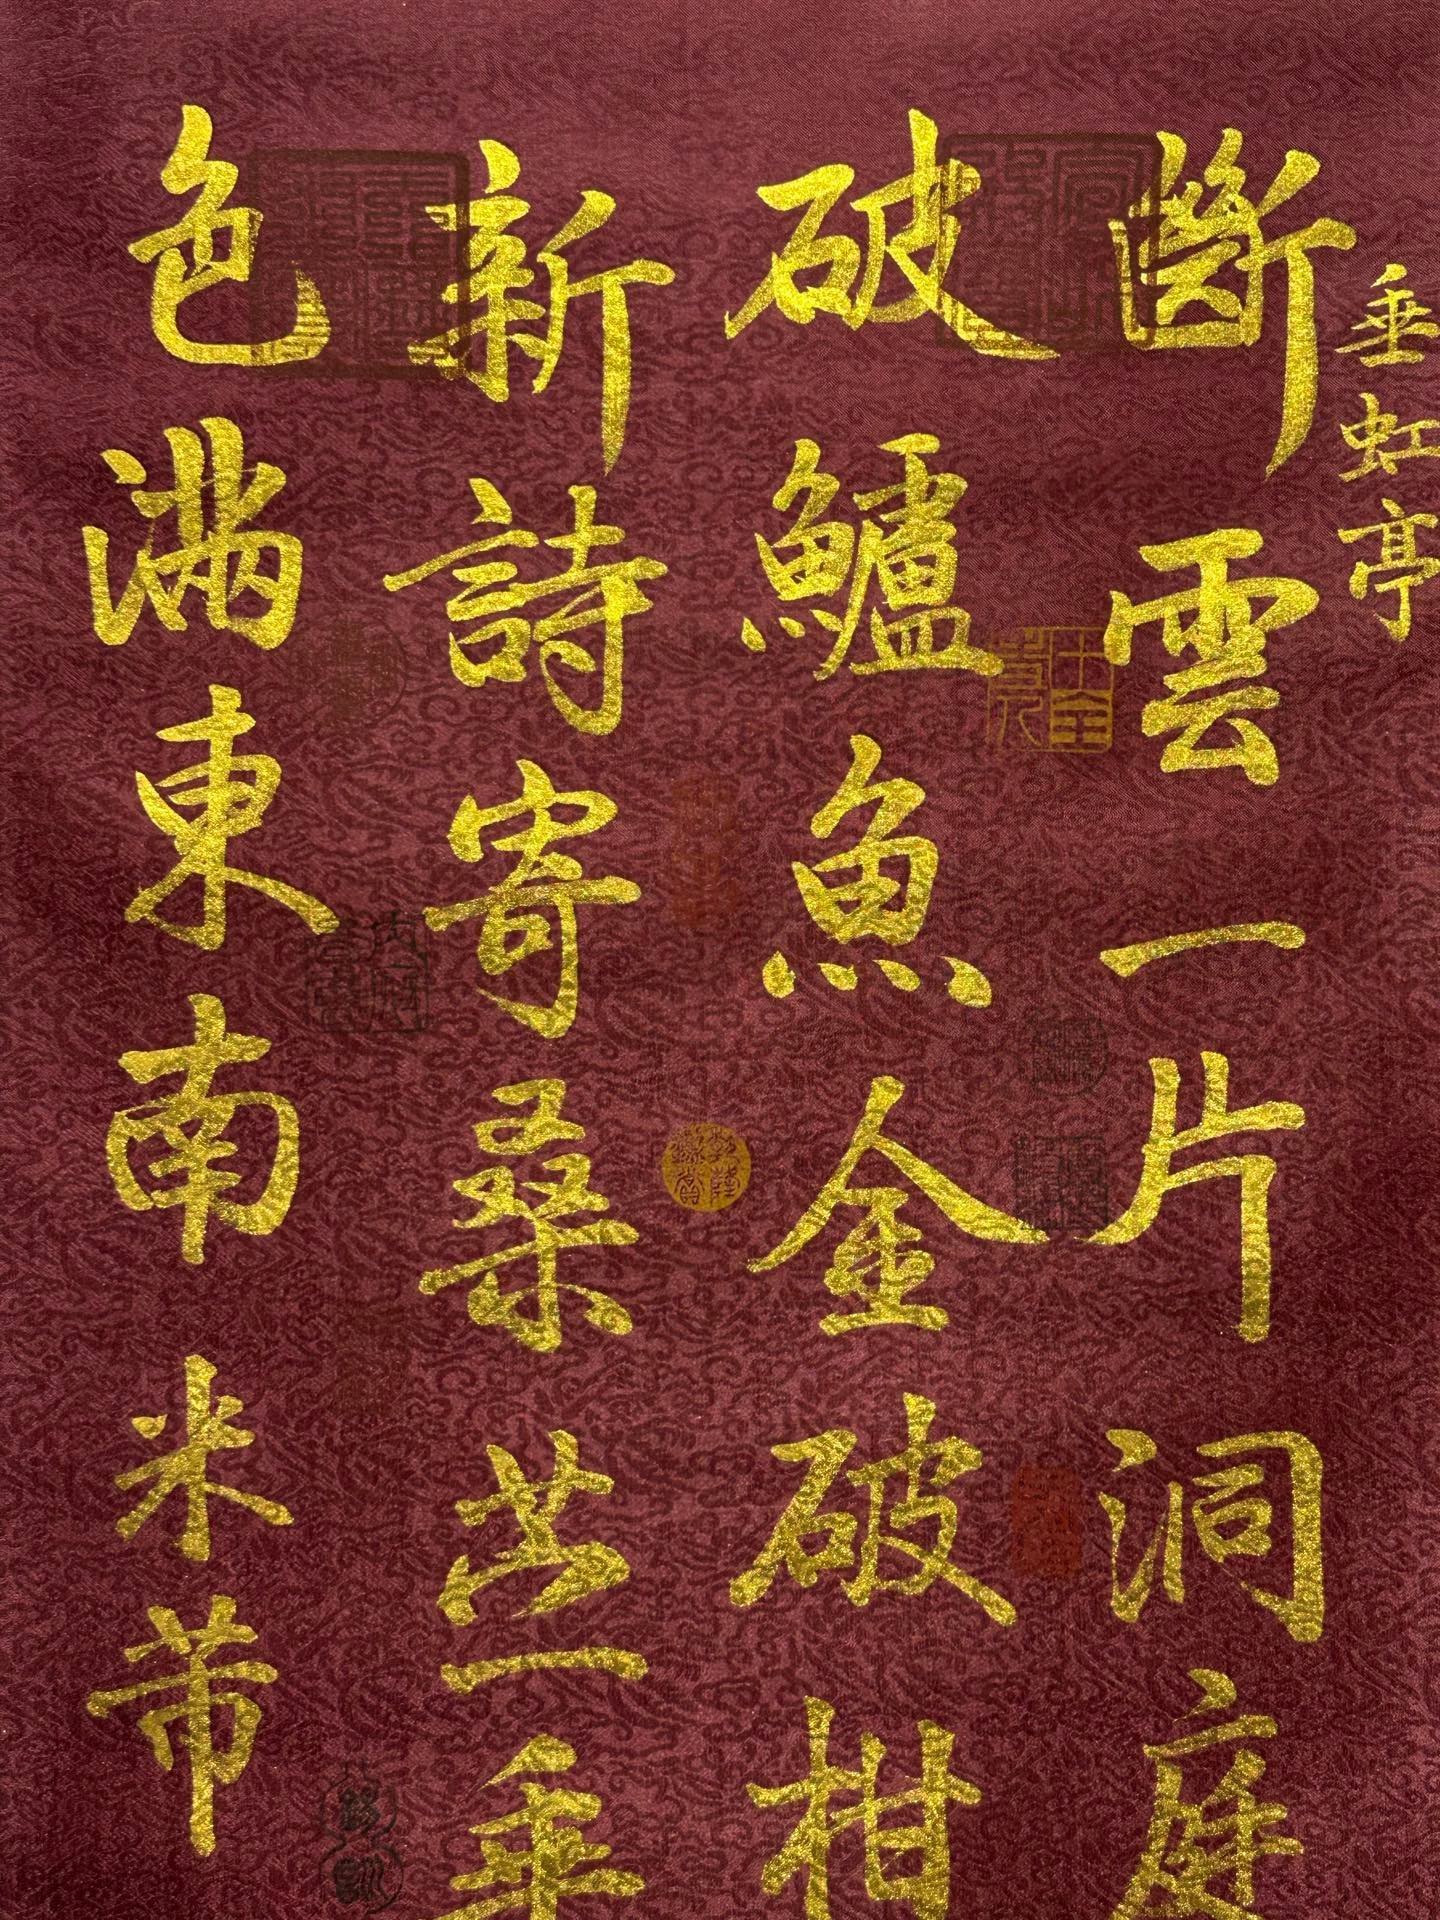 垂虹亭
斷雲一片洞庭
破鱸魚金破柑
新詩寄桑苎垂
色滿東南米芾